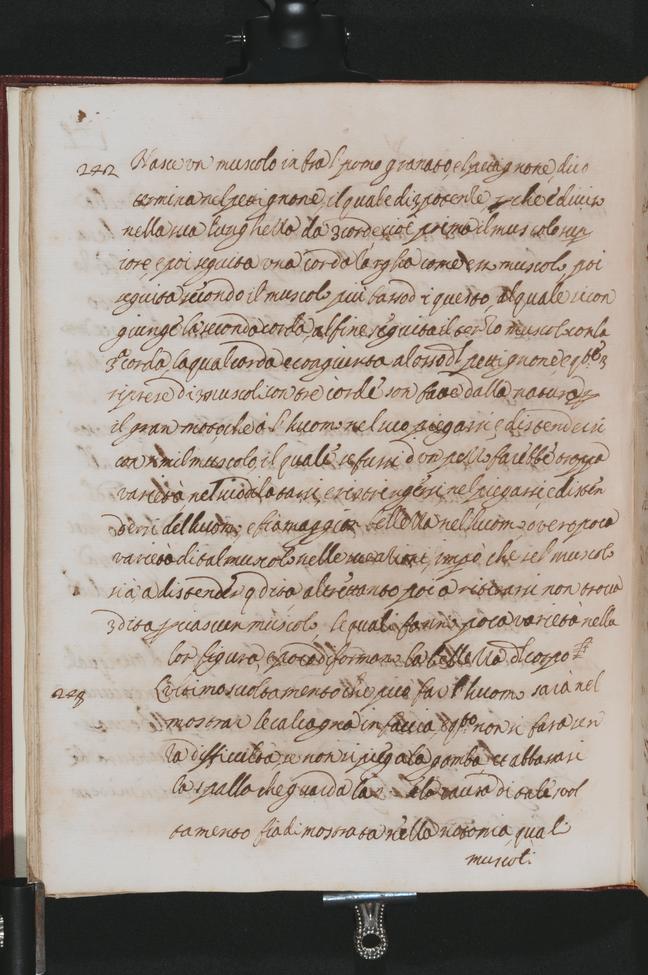 242 Nasce un muscolo infra l pomo granato e l pettignone, dico
termina nel pettignone, il quale di 3 potentie, perche è diviso
nella sua lunghezza da 3 corde cioè prima il muscolo sup
iore, e poi seguita una corda larga come esso muscolo, poi
seguita secondo il muscolo più basso di questo, al quale si con
giunge la seconda corda, al fine seguita il terzo muscolo con la
3ª corda, la qual corda e congiunta al osso del pettignone e qste 3
riprese di 3 muscoli con tre corde son fatte dalla natura per
il gran moto che à l'huomo nel suo piegarsi, e distendersi
con simil muscolo, il quale se fussi d'un pezzo farebbe troppa
varietà nel suo dilatarsi, e restringersi, nel piegarsi, e disten
dersi del huomo, e fia maggior bellezza nel huomo, over poca
varietà di tal muscolo nelle sue attioni, impò che se l muscol
si à a distender 9 dita, altrettanto poi a ritirarsi non trova
3 dita per ciascun muscolo le quali fanno poca varietà nella
lor figura, e poco diforman la bellezza del corpo
243 L'ultimo svoltamento che può far l'huomo saià nel
mostrar le calcagna in faccia, e qsto non si farà sen
za difficultà se non si piega la gamba, et abbassasi
la spalla che guarda la la causa di tale vol
tamento fia dimostrata nella notomia quali
muscoli